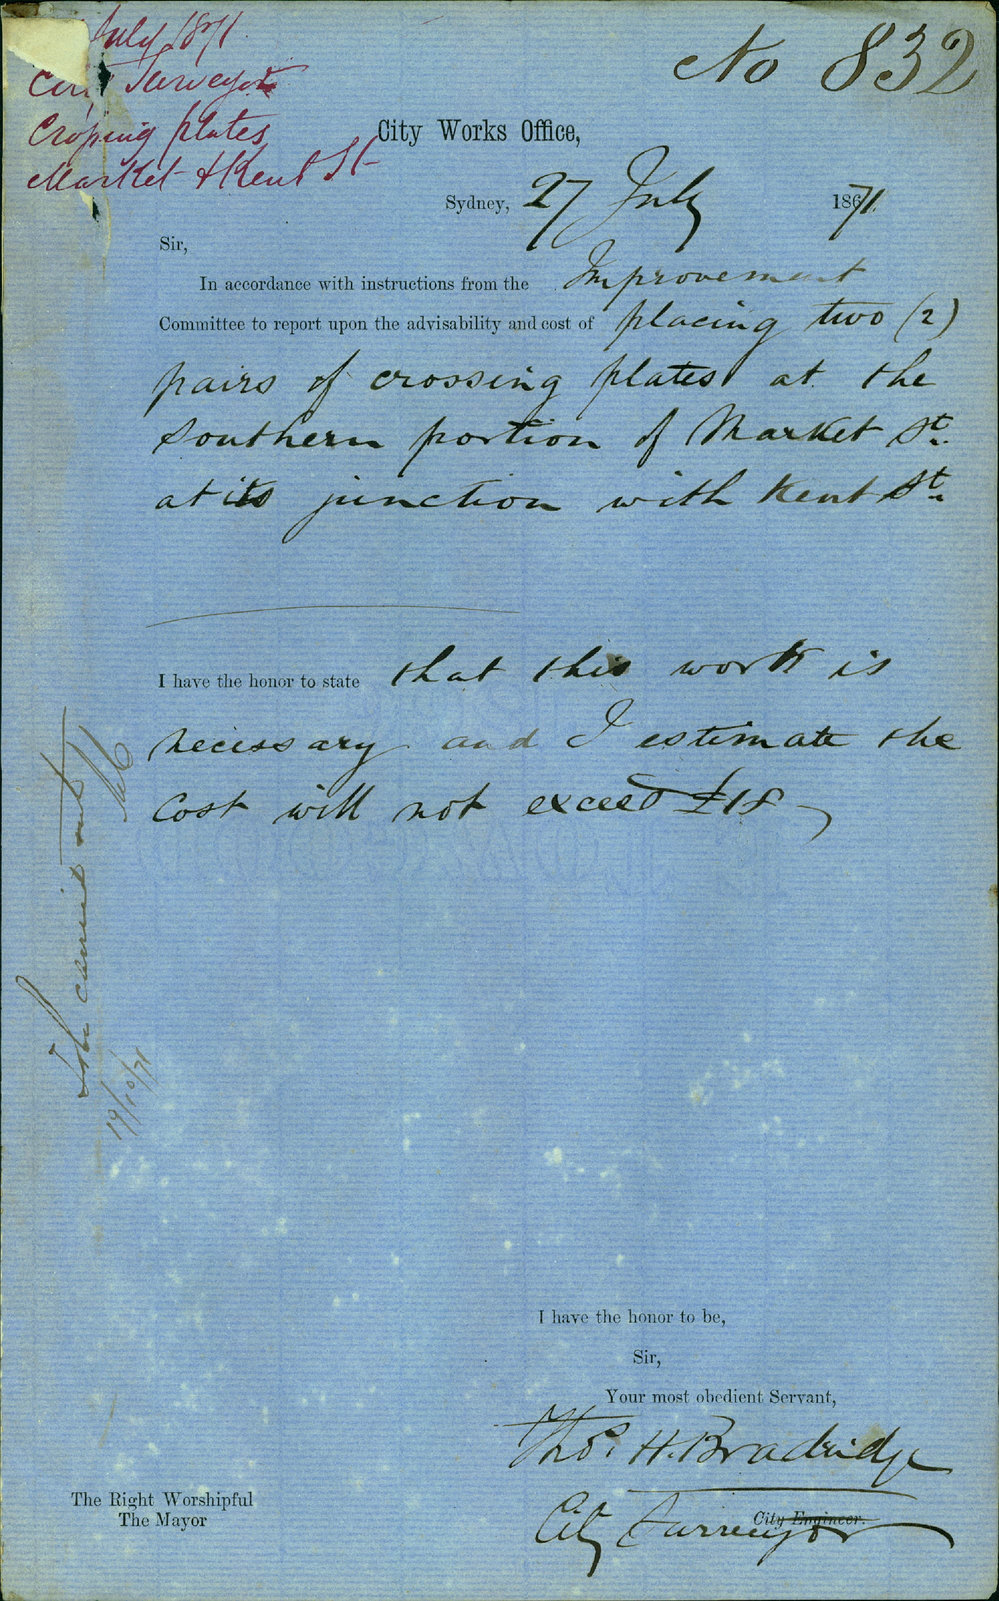 July 1871
City Surveyor
Crossing plates
Market & Kent St
No 832
City Works Office,
Sydney, 27 July 1871.
Sir,
In accordance with instructions from the Improvement
Committee to report upon the advisability and cost of placing two (2)
pairs of crossing plates at the
southern portion of Market St.
at its junction with Kent St.
I have the honor to state that this work is
necessary and I estimate the
cost will not exceed £18
To be carried out
19/10/71
I have the honor to be,
Sir,
Your most obedient Servant,
Thos. H. Bradridge
City Surveyor
City Engineer.
The Right Worshipful
The Mayor